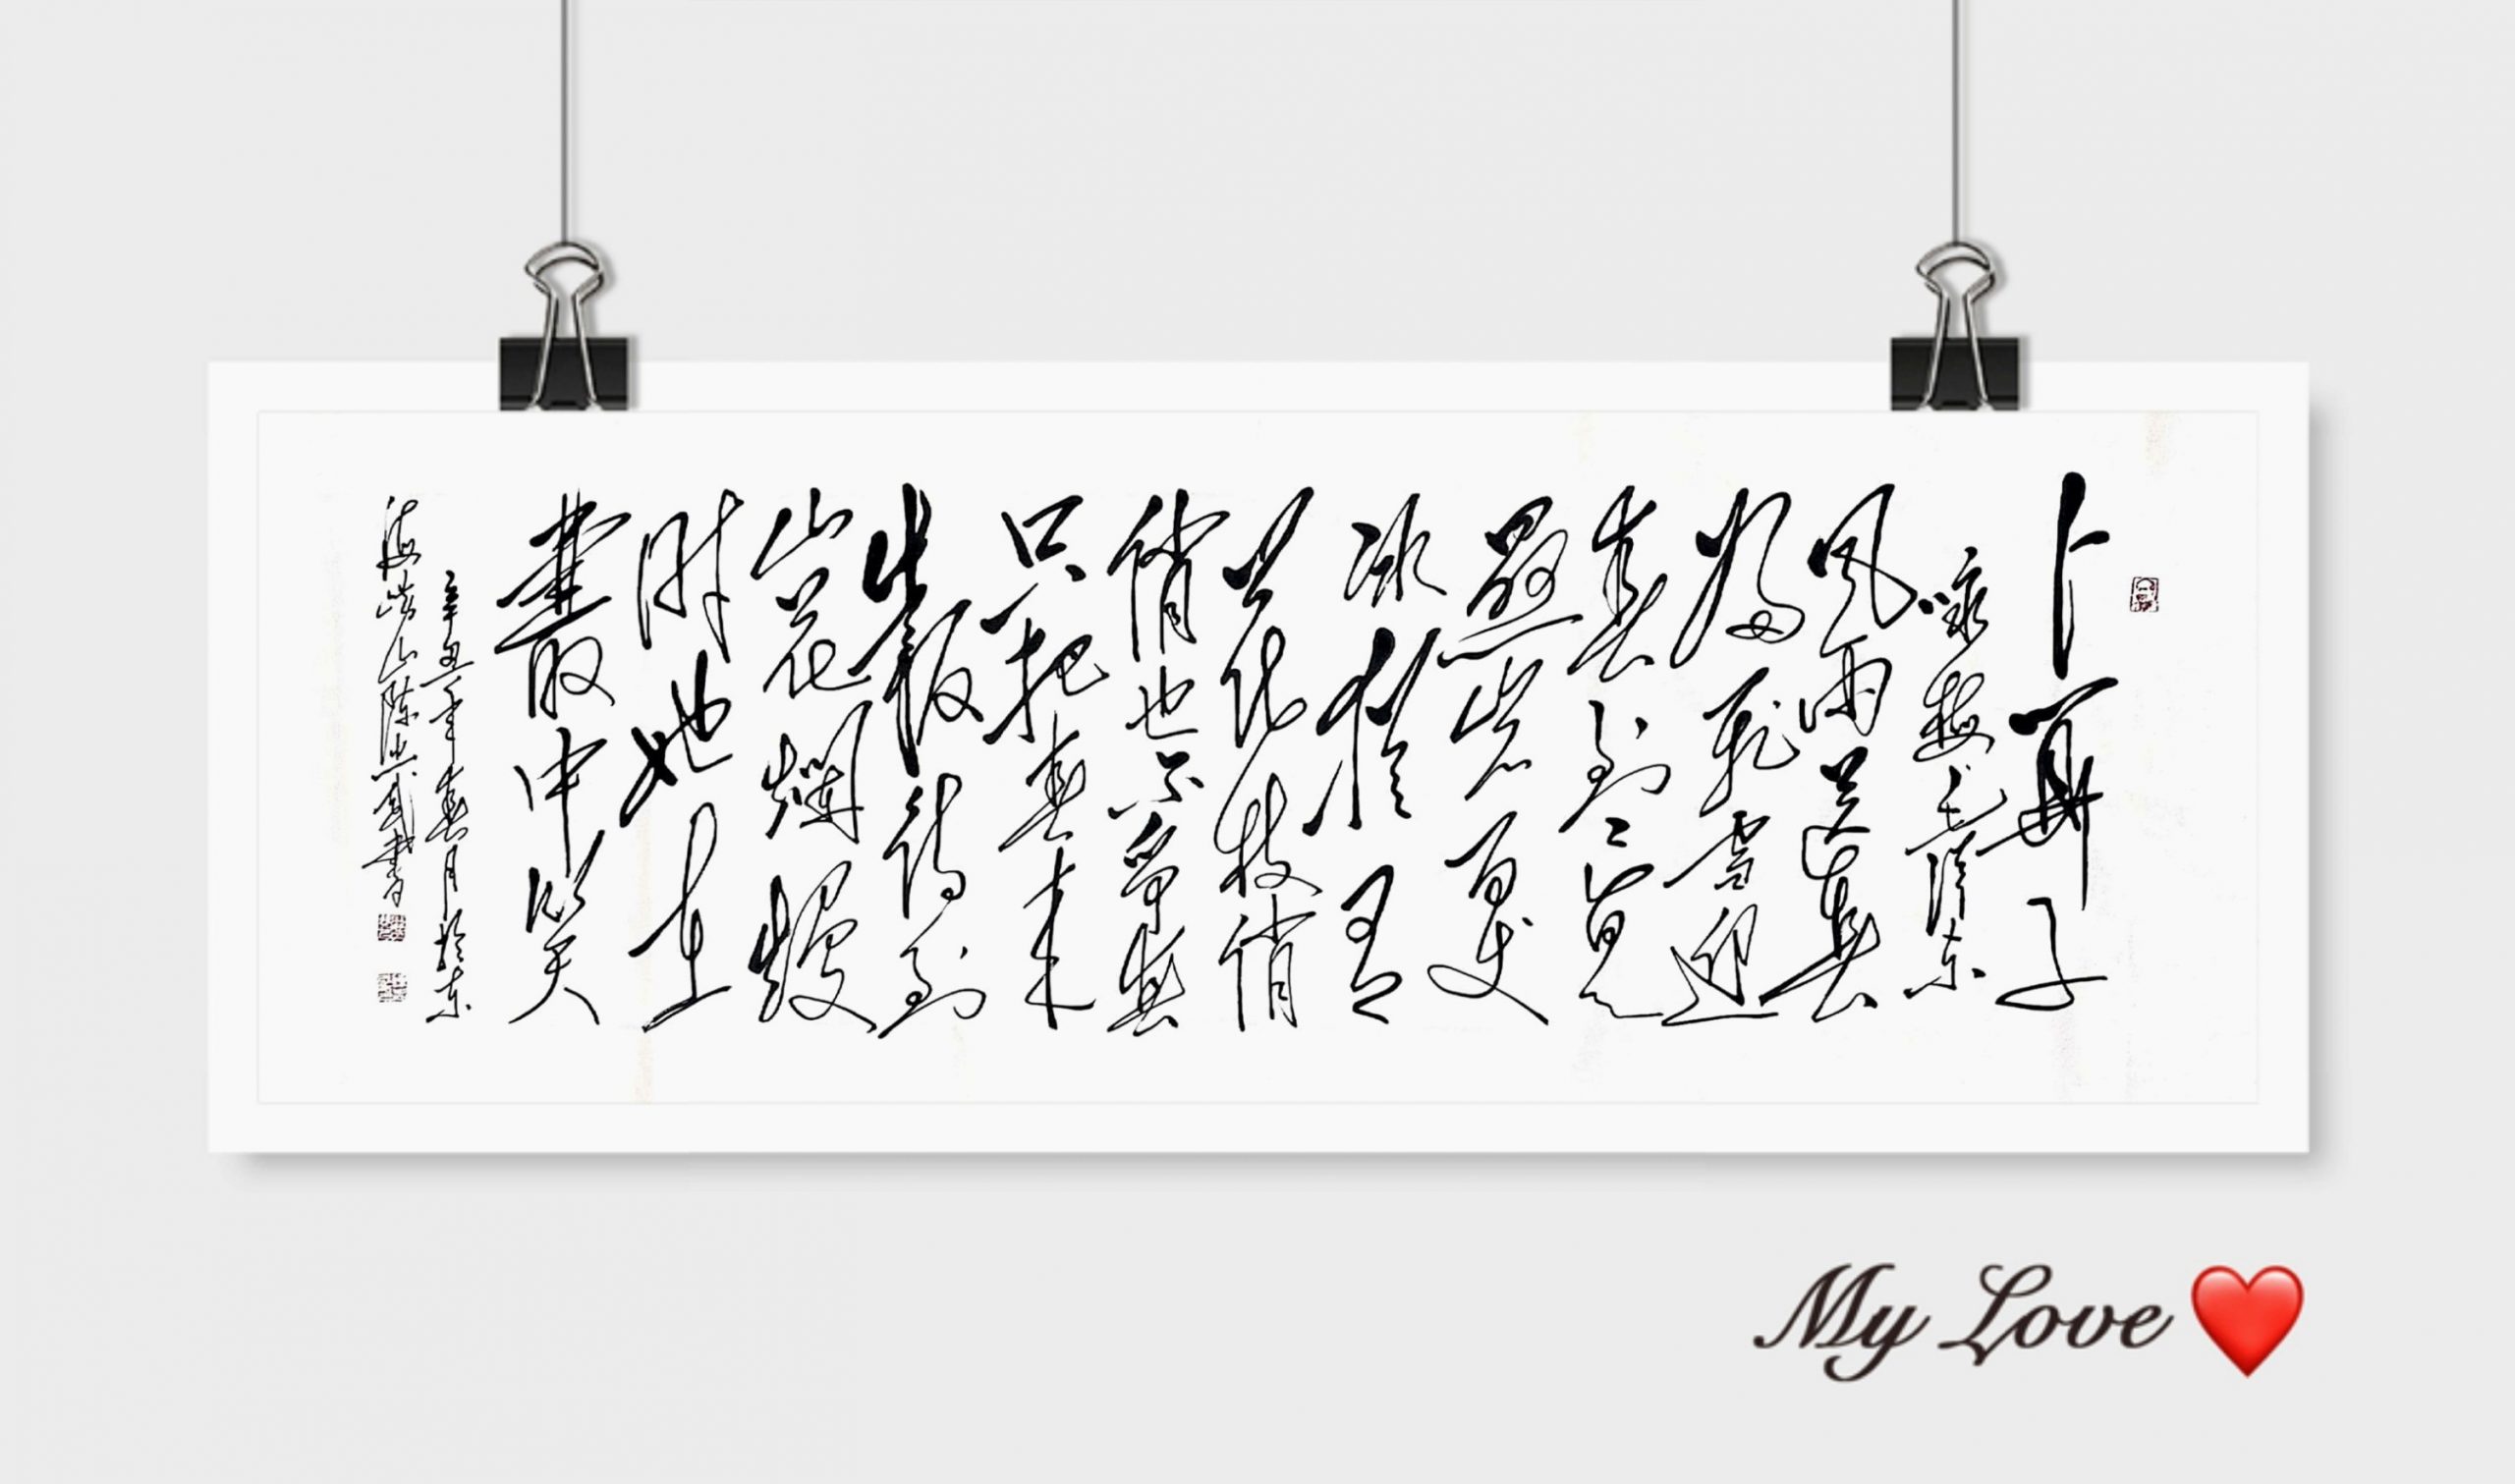 卜算子
咏梅毛泽东
风雨送春
归飞雪迎
春到已是
悬崖百丈
冰犹有
花枝俏
俏也不争春
只把春来
报待到
山花烂熳
时她在
丛中笑
辛丑年春月於东
海崂山陈书
My Love ❤️